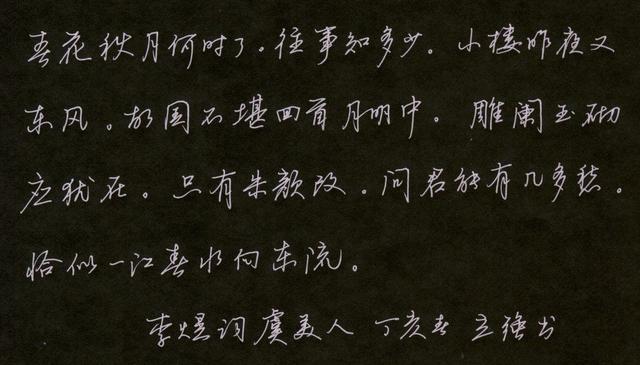 春花秋月何时了。往事知多少。小楼昨夜又
东风。故国不堪回首月明中。雕阑玉砌
应犹在。只有朱颜改。问君能有几多愁。
恰似一江春水向东流。
李煜词虞美人 丁亥春 立强书